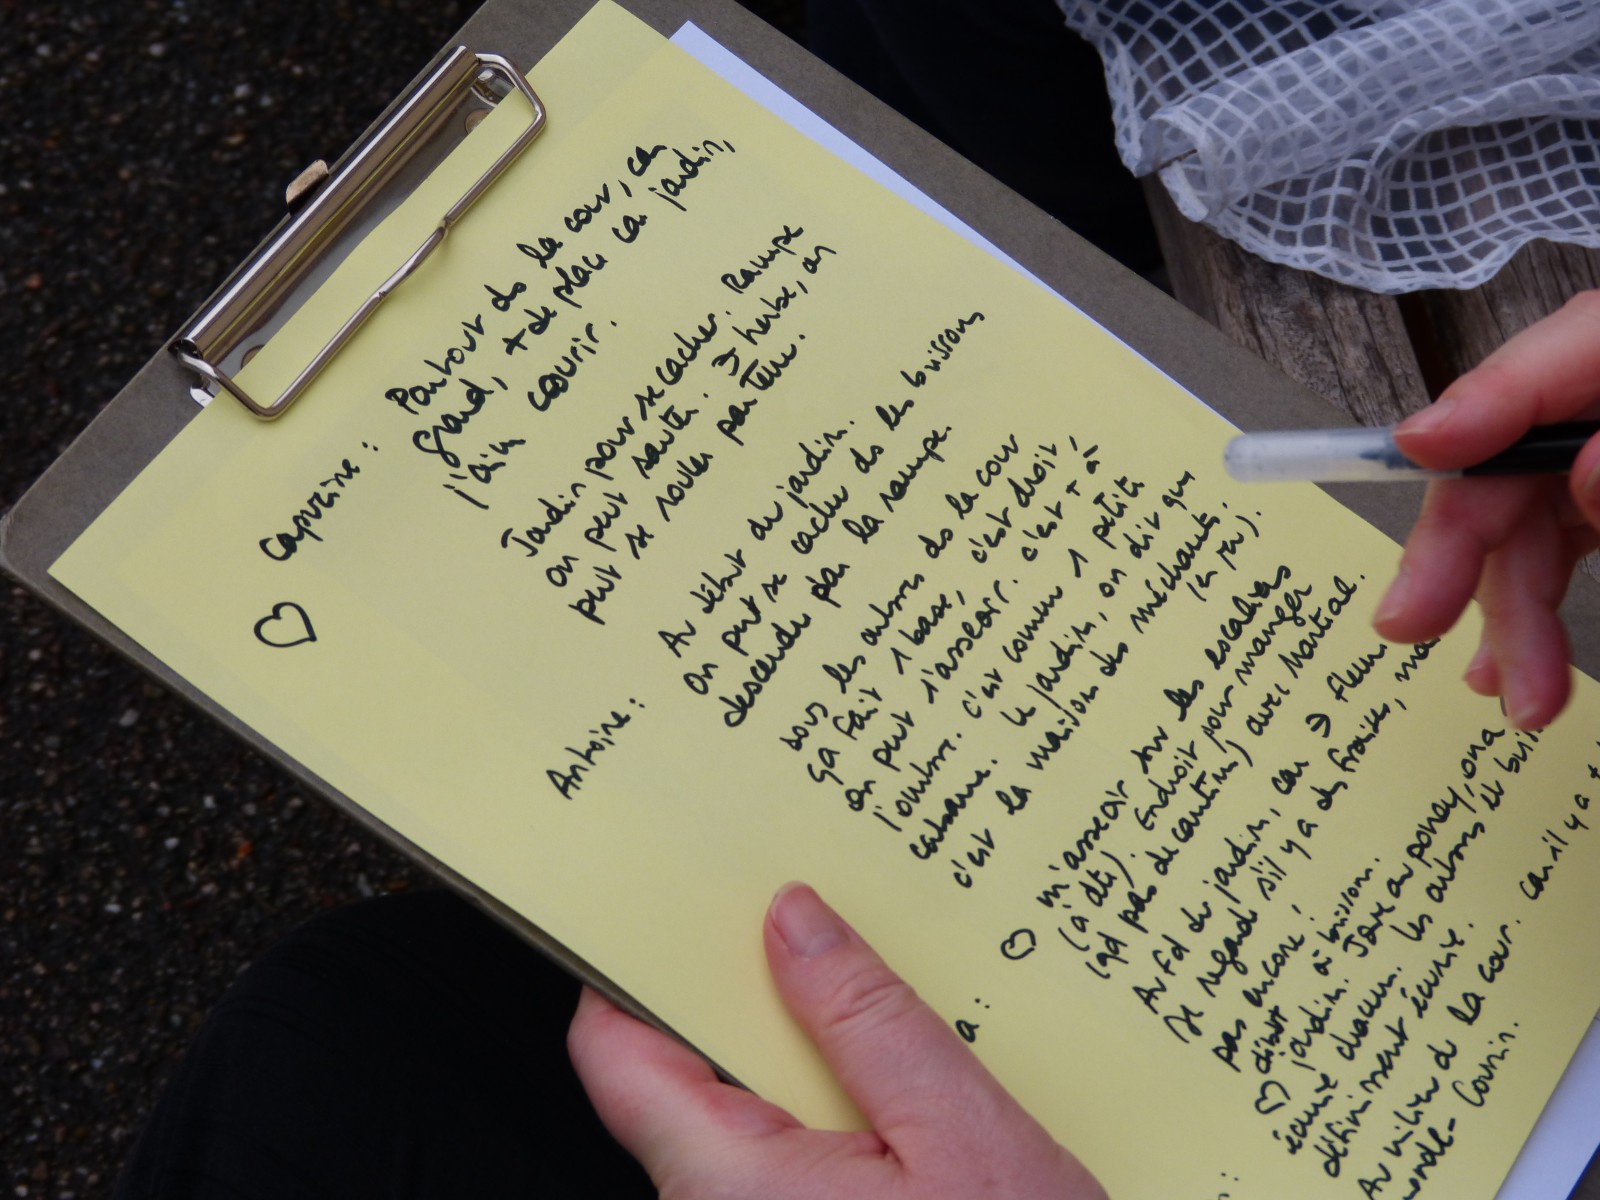 Capucine : Partout ds la cour, car
grand, + de place car jardin,
j'aim courir.
Jardin pour se cacher. Rampe
on peut sauter. ∃ herbe, on
peut se rouler par terre.
Antoine : Au début du jardin.
On peut se cacher ds les buissons
descendre par la rampe.
sous les arbres ds la cour
ça fait 1 base, c'est droit,
on peut s'asseoir. c'est + à
l'ombre. c'est comme 1 petite
cabane. Le jardin, on dit que
c'est la maison des méchants.
(en jeu).
a : m'asseoir sur les escaliers
(à dte). Endroit pour manger
(qd pas de cantine) avec Martial.
Au fd du jardin, car ∃ fleurs
je regarde s'il y a des fraises, ma
pas encore !
début à buisson.
jardin. Joue au poney, on a
écurie chacun. les arbres et bui
définissent écurie.
n : Au milieu de la cour. car il y a +
monde - Courir.